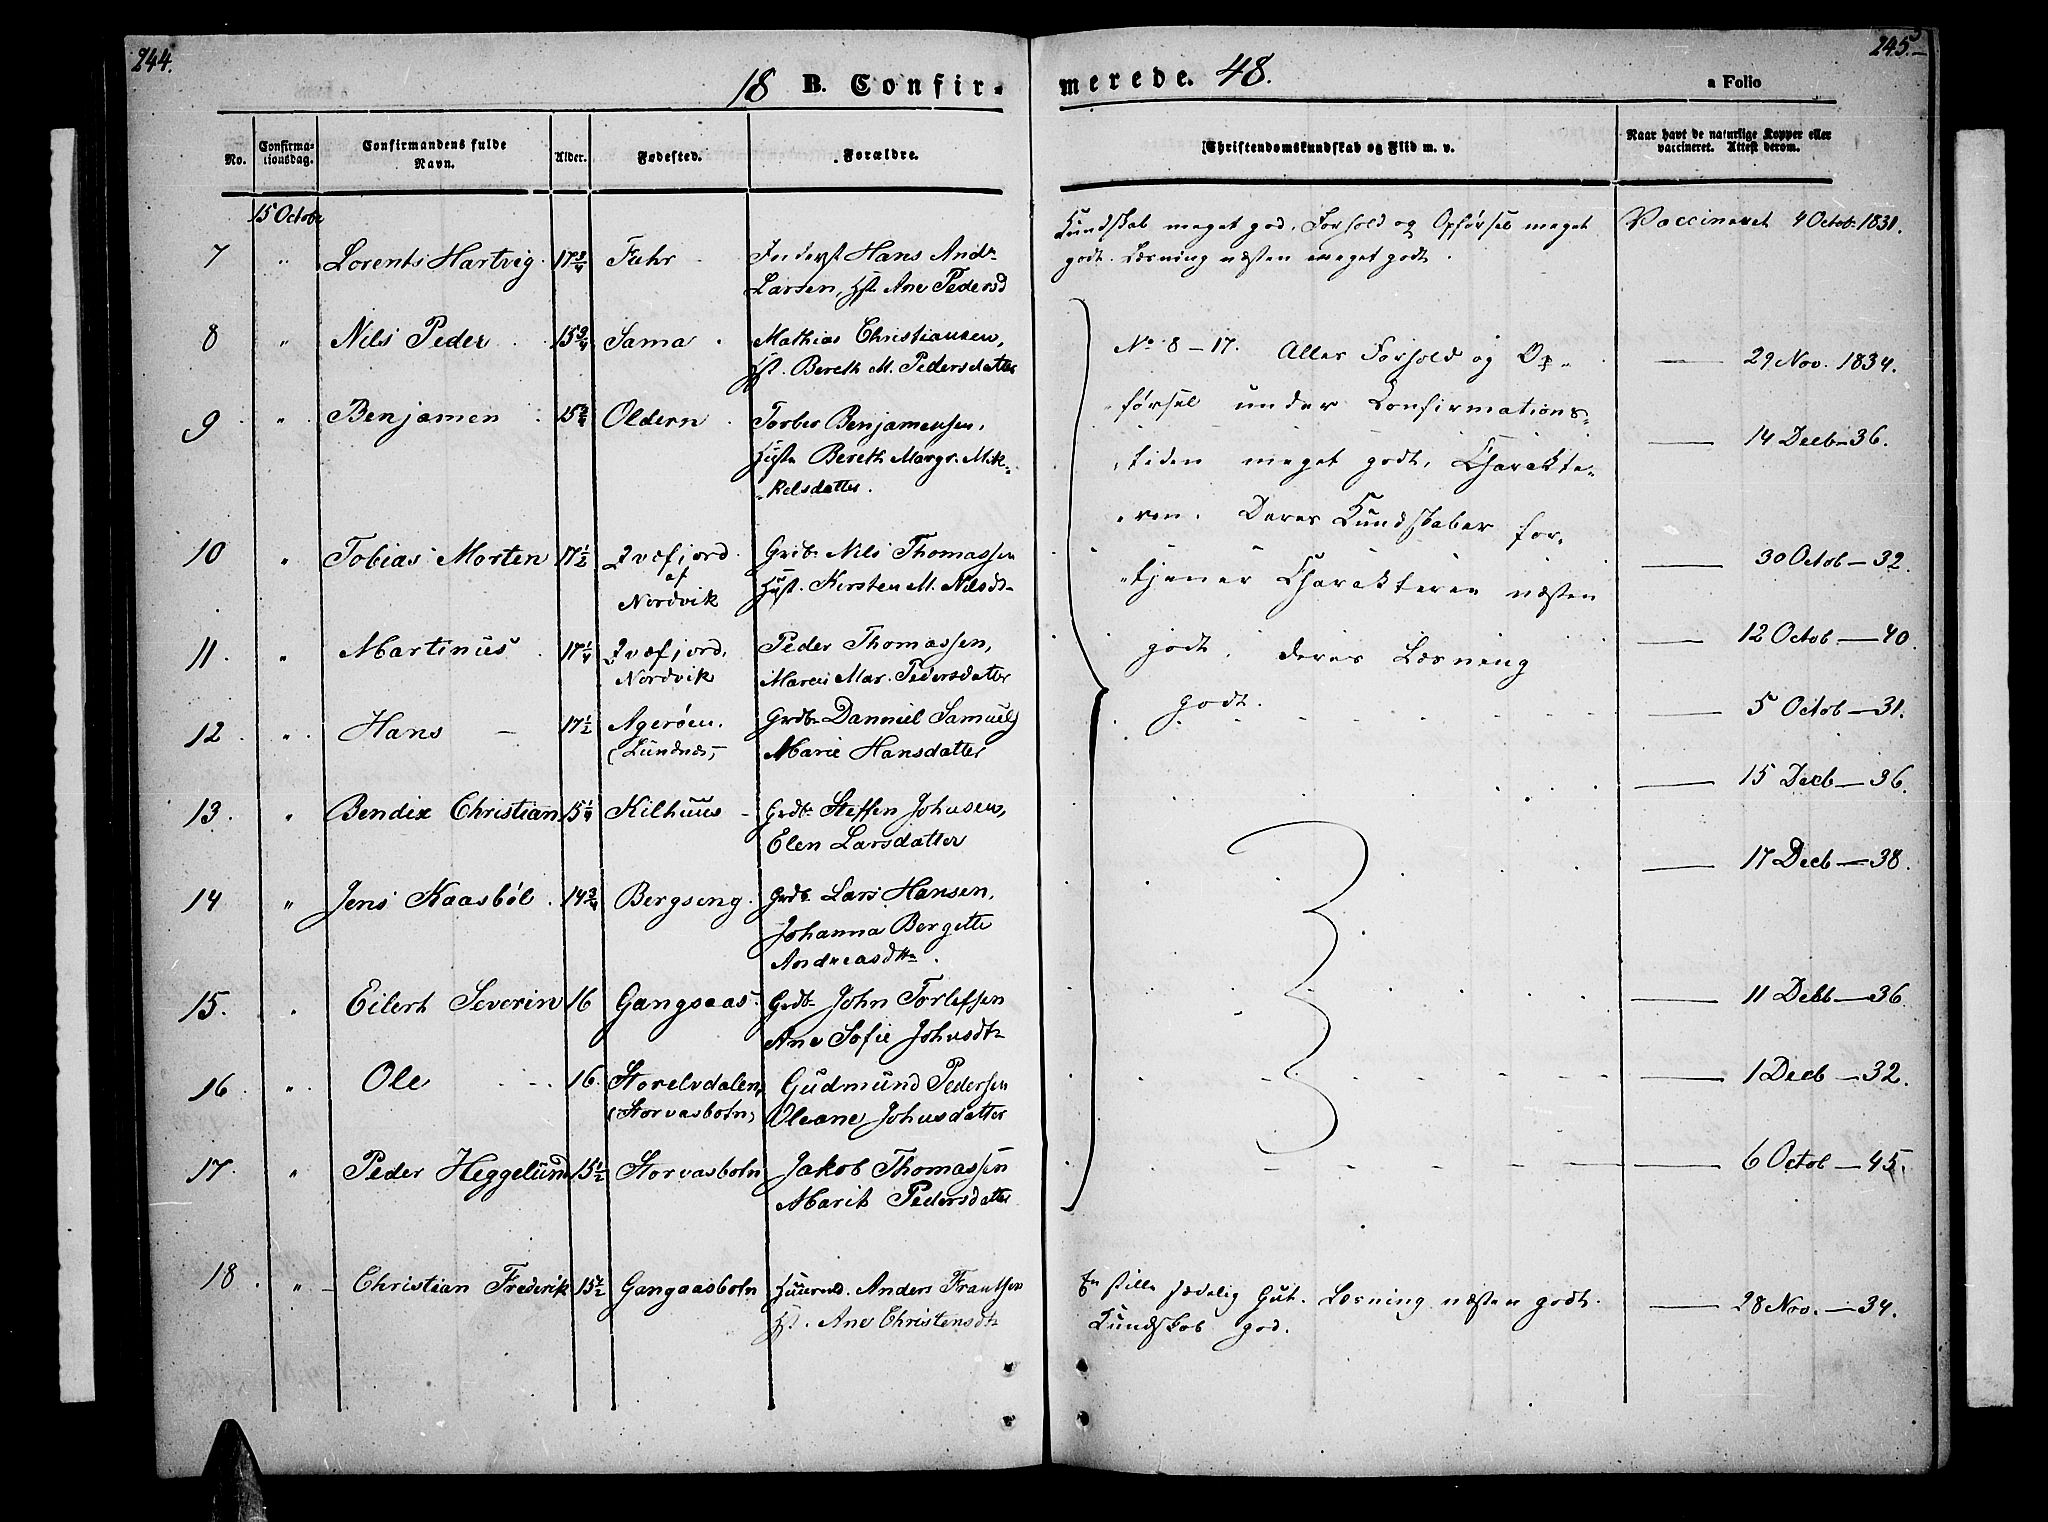 244.
245.
18 B. Confir-
merede. 48.
a Folio
No.
Confirma-
tionsdag.
Confirmandens fulde
Navn.
Alder.
Fødested.
Forældre.
Christendomskundskab og Flid m. v.
Naar havt de naturlige Kopper eller
vaccineret. Attest derom.
15 Octobr
7 " Lorents Hartvig 17 3/4 Fuhr Inderst Hans Andr.
Larsen, Hst. Ane Pedersd
Kundskab meget god, Forhold og Opførsel meget
godt. Læsning næsten meget godt.
Vaccineret 4 Octob. 1831.
8 " Nils Peder 15 3/4 Sama Mathias Christiansen,
Hst. Bereth M. Pedersdatter
No 8-17. Alles Forhold og Op-
29 Nov. 1834.
9 " Benjamen 15 3/4 Oldern Torber Benjamensen,
Hust. Bereth Margr. Mik-
kelsdatter.
førsel under Confirmations-
tiden meget godt, Charakte-
ren. Deres Kundskaber for-
14 Decb - 36.
10 " Tobias Morten 17 1/2 Qvæfjord Grdb. Nils Thomassen
af
Nordvik Hust. Kirsten M. Nilsdt-
tjener Charakteren næsten
30 Octob - 32.
11. " Martinus 17 1/4 Qvæfjord, Peder Thomassen,
Nordvik Maren Mar. Pedersdatter
godt, deres Læsning
12 Octob - 40.
12 " Hans - 17 1/2 Agerøen. Grdb. Danniel Samuels
(Lundnes, Marie Hansdatter
godt.
5 Octob - 31.
13. " Bendix Christian 15 1/4 Kilhuus - Grdb. Steffen Johnsen,
Elen Larsdatter
15 Decb - 36.
14 " Jens Kaasbøl 14 3/4 Bergseng Grdb. Lars Hansen,
Johanna Bergette
Andreasdtr.
17 Decb - 38.
15. " Eilert Severin 16 Gangsaas Grdb. John Torlefsen
Ane Sofie Johnsdtr
11 Decb - 36.
16 " Ole 16. Storelvdalen, Gudmund Pedersen
(Storvasbotn, Oleane Johnsdatter
1 Decb - 32.
17. " Peder Heggelund 15 1/2 Storvasbotn Jakob Thomassen
Marit Pedersdatter
6 Octob - 45.
18. " Christian Frederik 15 1/2 Gangaasbotn Huusmd. Anders Frantsen
Hst. Ane Christensdtr
En stille sædelig Gut. Læsning næsten godt.
Kundskab god.
28 Nov. - 34.